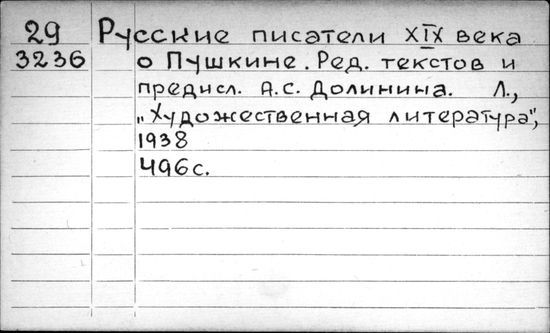 29 Русские писатели XIX века
3236 о Пушкине. Ред. текстов и
предисл. А.С. Долинина. Л.,
„Художественная литература",
1938
496с.